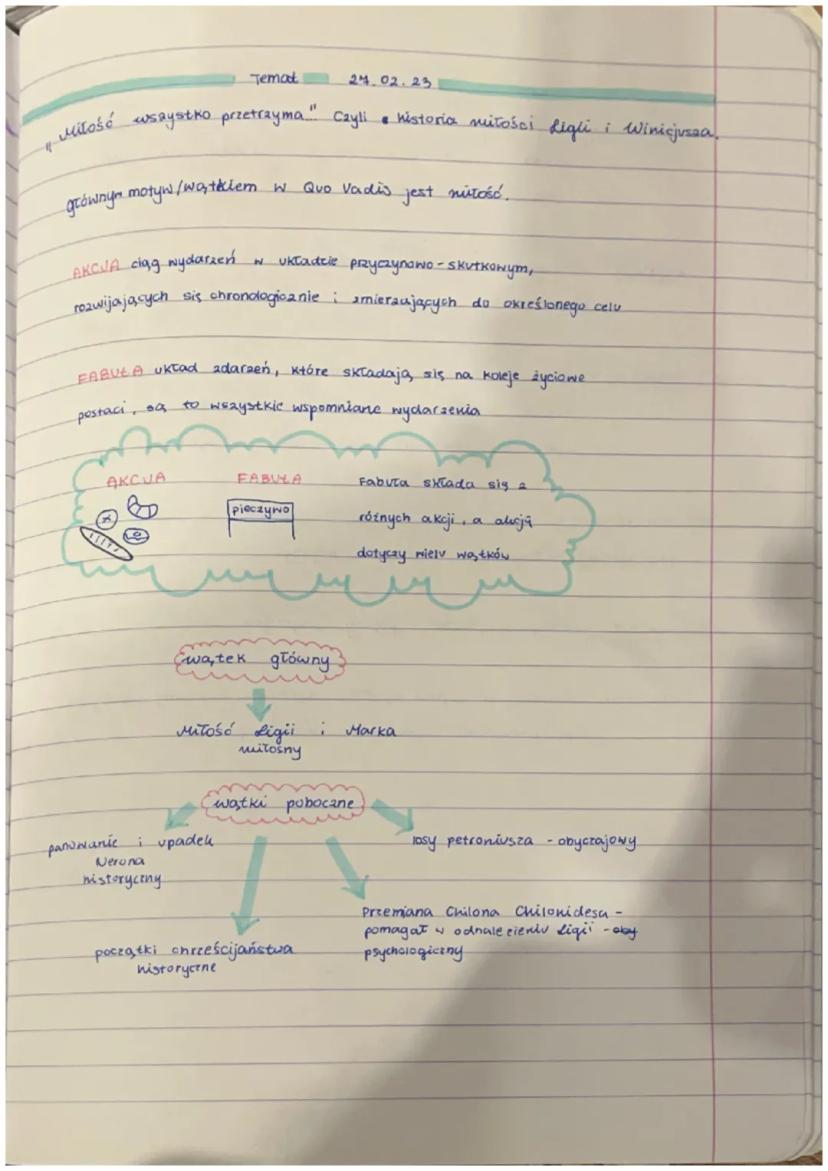 Temat 27.02.23
"Miłość wszystko przetrzyma" Czyli historia miłości Ligii i Winicjusza.
głównym motyw/wątkiem w Quo Vadis jest miłość.
AKCJA ciąg wydarzeń w układzie przyczynowo-skutkowym,
rozwijających się chronologicznie i zmierzających do określonego celu
FABUŁA układ zdarzeń, które składają się na koleje życiowe
postaci, są to wszystkie wspomniane wydarzenia
AKCJA FABUŁA Fabuła składa się z
pieczywo różnych akcji, a akcja
dotyczy wielu wątków
wątek główny
Miłość Ligii i Marka
miłosny
wątki poboczne
panowanie i upadek
Nerona
historyczny
losy petroniusza - obyczajowy
Przemiana Chilona Chilonidesa -
pomagał w odnalezieniu Ligii - oby
psychologiczny
początki chrześcijaństwa
historyczne